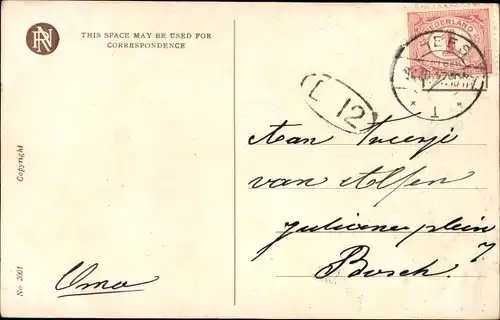 THIS SPACE MAY BE USED FOR
CORRESPONDENCE
NEDERLAND
L 12
Aan Truusje
van Alfen
Julianaplein
7
Bosch.
Oma
Copyright
No 3001